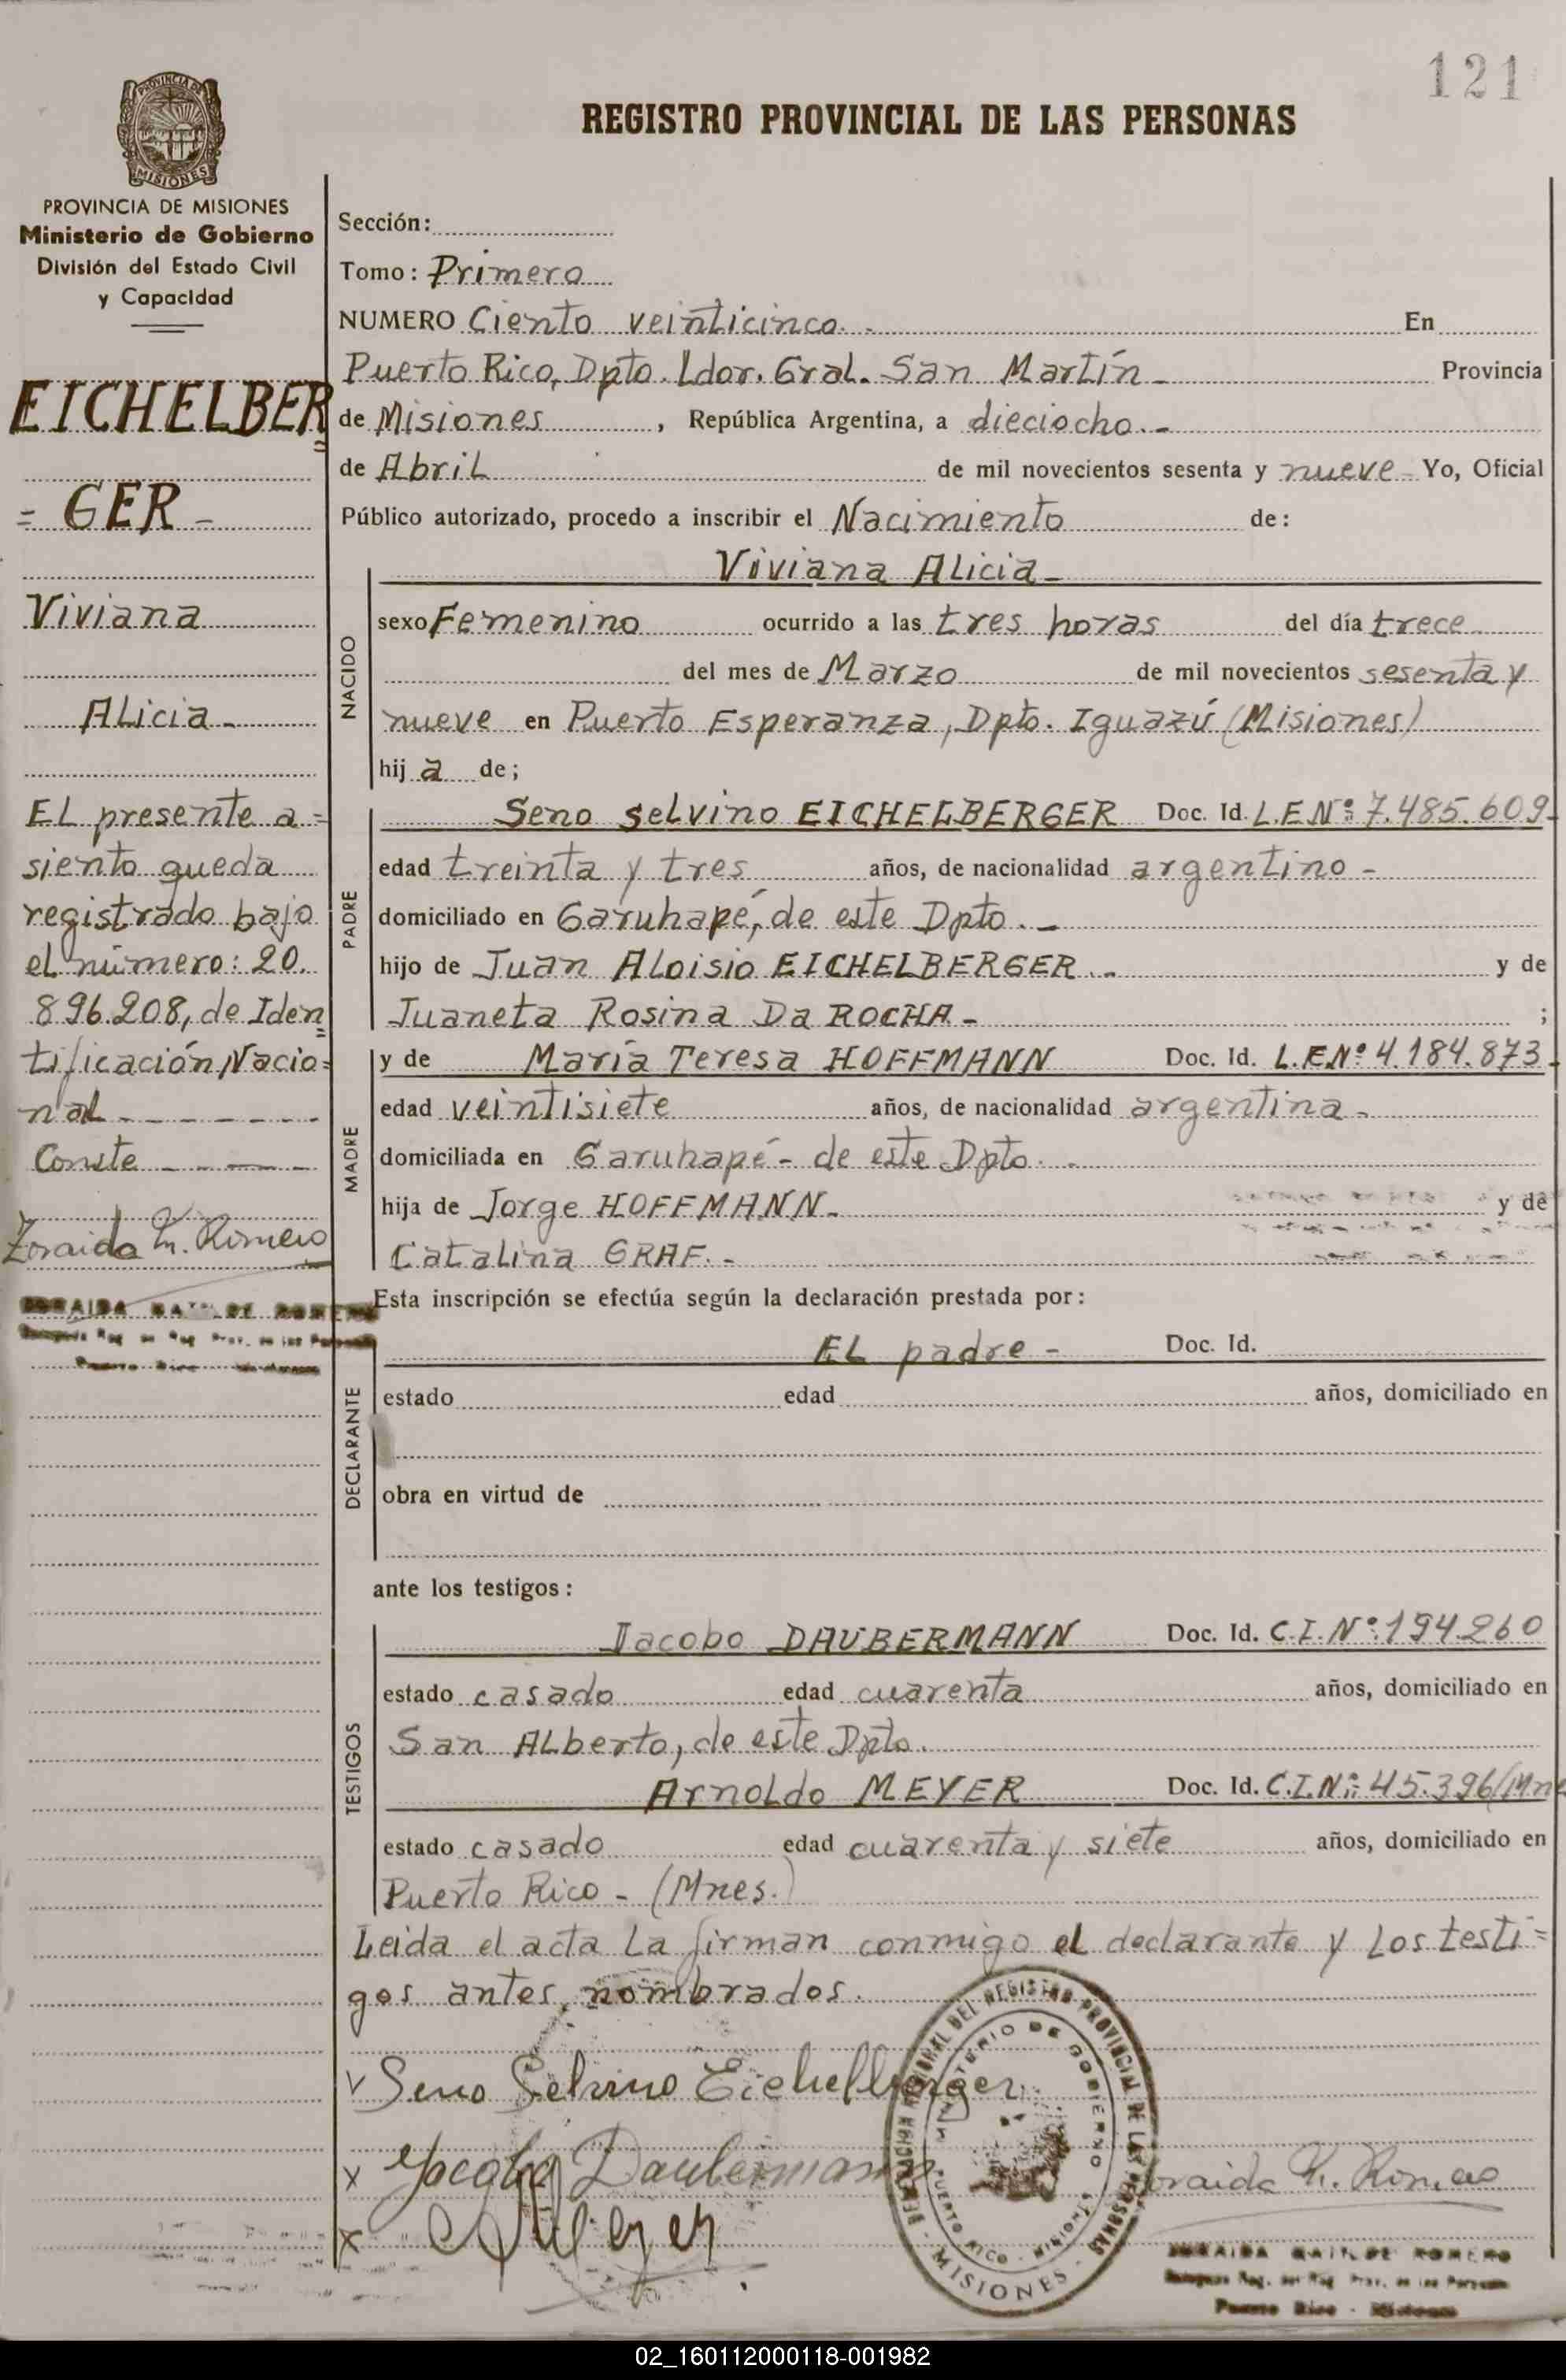 121
REGISTRO PROVINCIAL DE LAS PERSONAS
PROVINCIA DE MISIONES
Ministerio de Gobierno
División del Estado Civil
y Capacidad
EICHELBER=
= GER -
Viviana
Alicia -
El presente a=
siento queda
registrado bajo
el número: 20.
896.208, de Iden=
tificación Nacio=
nal - - - - - -
Conste - - - -
Zoraida M. Romero
ZORAIDA MATILDE ROMERO
Puerto Rico - Misiones
Sección:
Tomo: Primero
NUMERO Ciento veinticinco. - En
Puerto Rico, Dpto. Ldor. Gral. San Martín - Provincia
de Misiones , República Argentina, a dieciocho. -
de Abril de mil novecientos sesenta y nueve - Yo, Oficial
Público autorizado, procedo a inscribir el Nacimiento de:
NACIDO
Viviana Alicia -
sexo Femenino ocurrido a las tres horas del día trece
del mes de Marzo de mil novecientos sesenta y
nueve en Puerto Esperanza, Dpto. Iguazú (Misiones)
hij a de;
PADRE
Seno Selvino EICHELBERGER Doc. Id. L.E.Nº: 7.485.609-
edad treinta y tres años, de nacionalidad argentino -
domiciliado en Garuhapé, de este Dpto. -
hijo de Juan Aloisio EICHELBERGER. - y de
Juaneta Rosina Da ROCHA - ;
MADRE
y de María Teresa HOFFMANN Doc. Id. L.E.Nº 4.184.873-
edad veintisiete años, de nacionalidad argentina -
domiciliada en Garuhapé - de este Dpto. -
hija de Jorge HOFFMANN - y de
Catalina GRAF. -
Esta inscripción se efectúa según la declaración prestada por:
DECLARANTE
El padre - Doc. Id.
estado edad años, domiciliado en
obra en virtud de
ante los testigos:
TESTIGOS
Jacobo DAUBERMANN Doc. Id. C.I. Nº: 194260
estado casado edad cuarenta años, domiciliado en
San Alberto, de este Dpto.
Arnoldo MEYER Doc. Id. C.I.Nº: 45.396/Mne
estado casado edad cuarenta y siete años, domiciliado en
Puerto Rico - (Mnes.)
Leida el acta la firman conmigo el declarante y los testi=
gos antes nombrados.
Seno Selvino Eichelberger
x Jacobo Daubermann
x Meyer
DELEGACION REGIONAL DEL REGISTRO PROVINCIAL DE LAS PERSONAS
MINISTERIO DE GOBIERNO
PUERTO RICO - MISIONES
- MISIONES -
Zoraida M. Romero
ZORAIDA MATILDE ROMERO
Puerto Rico - Misiones
02_160112000118-001982